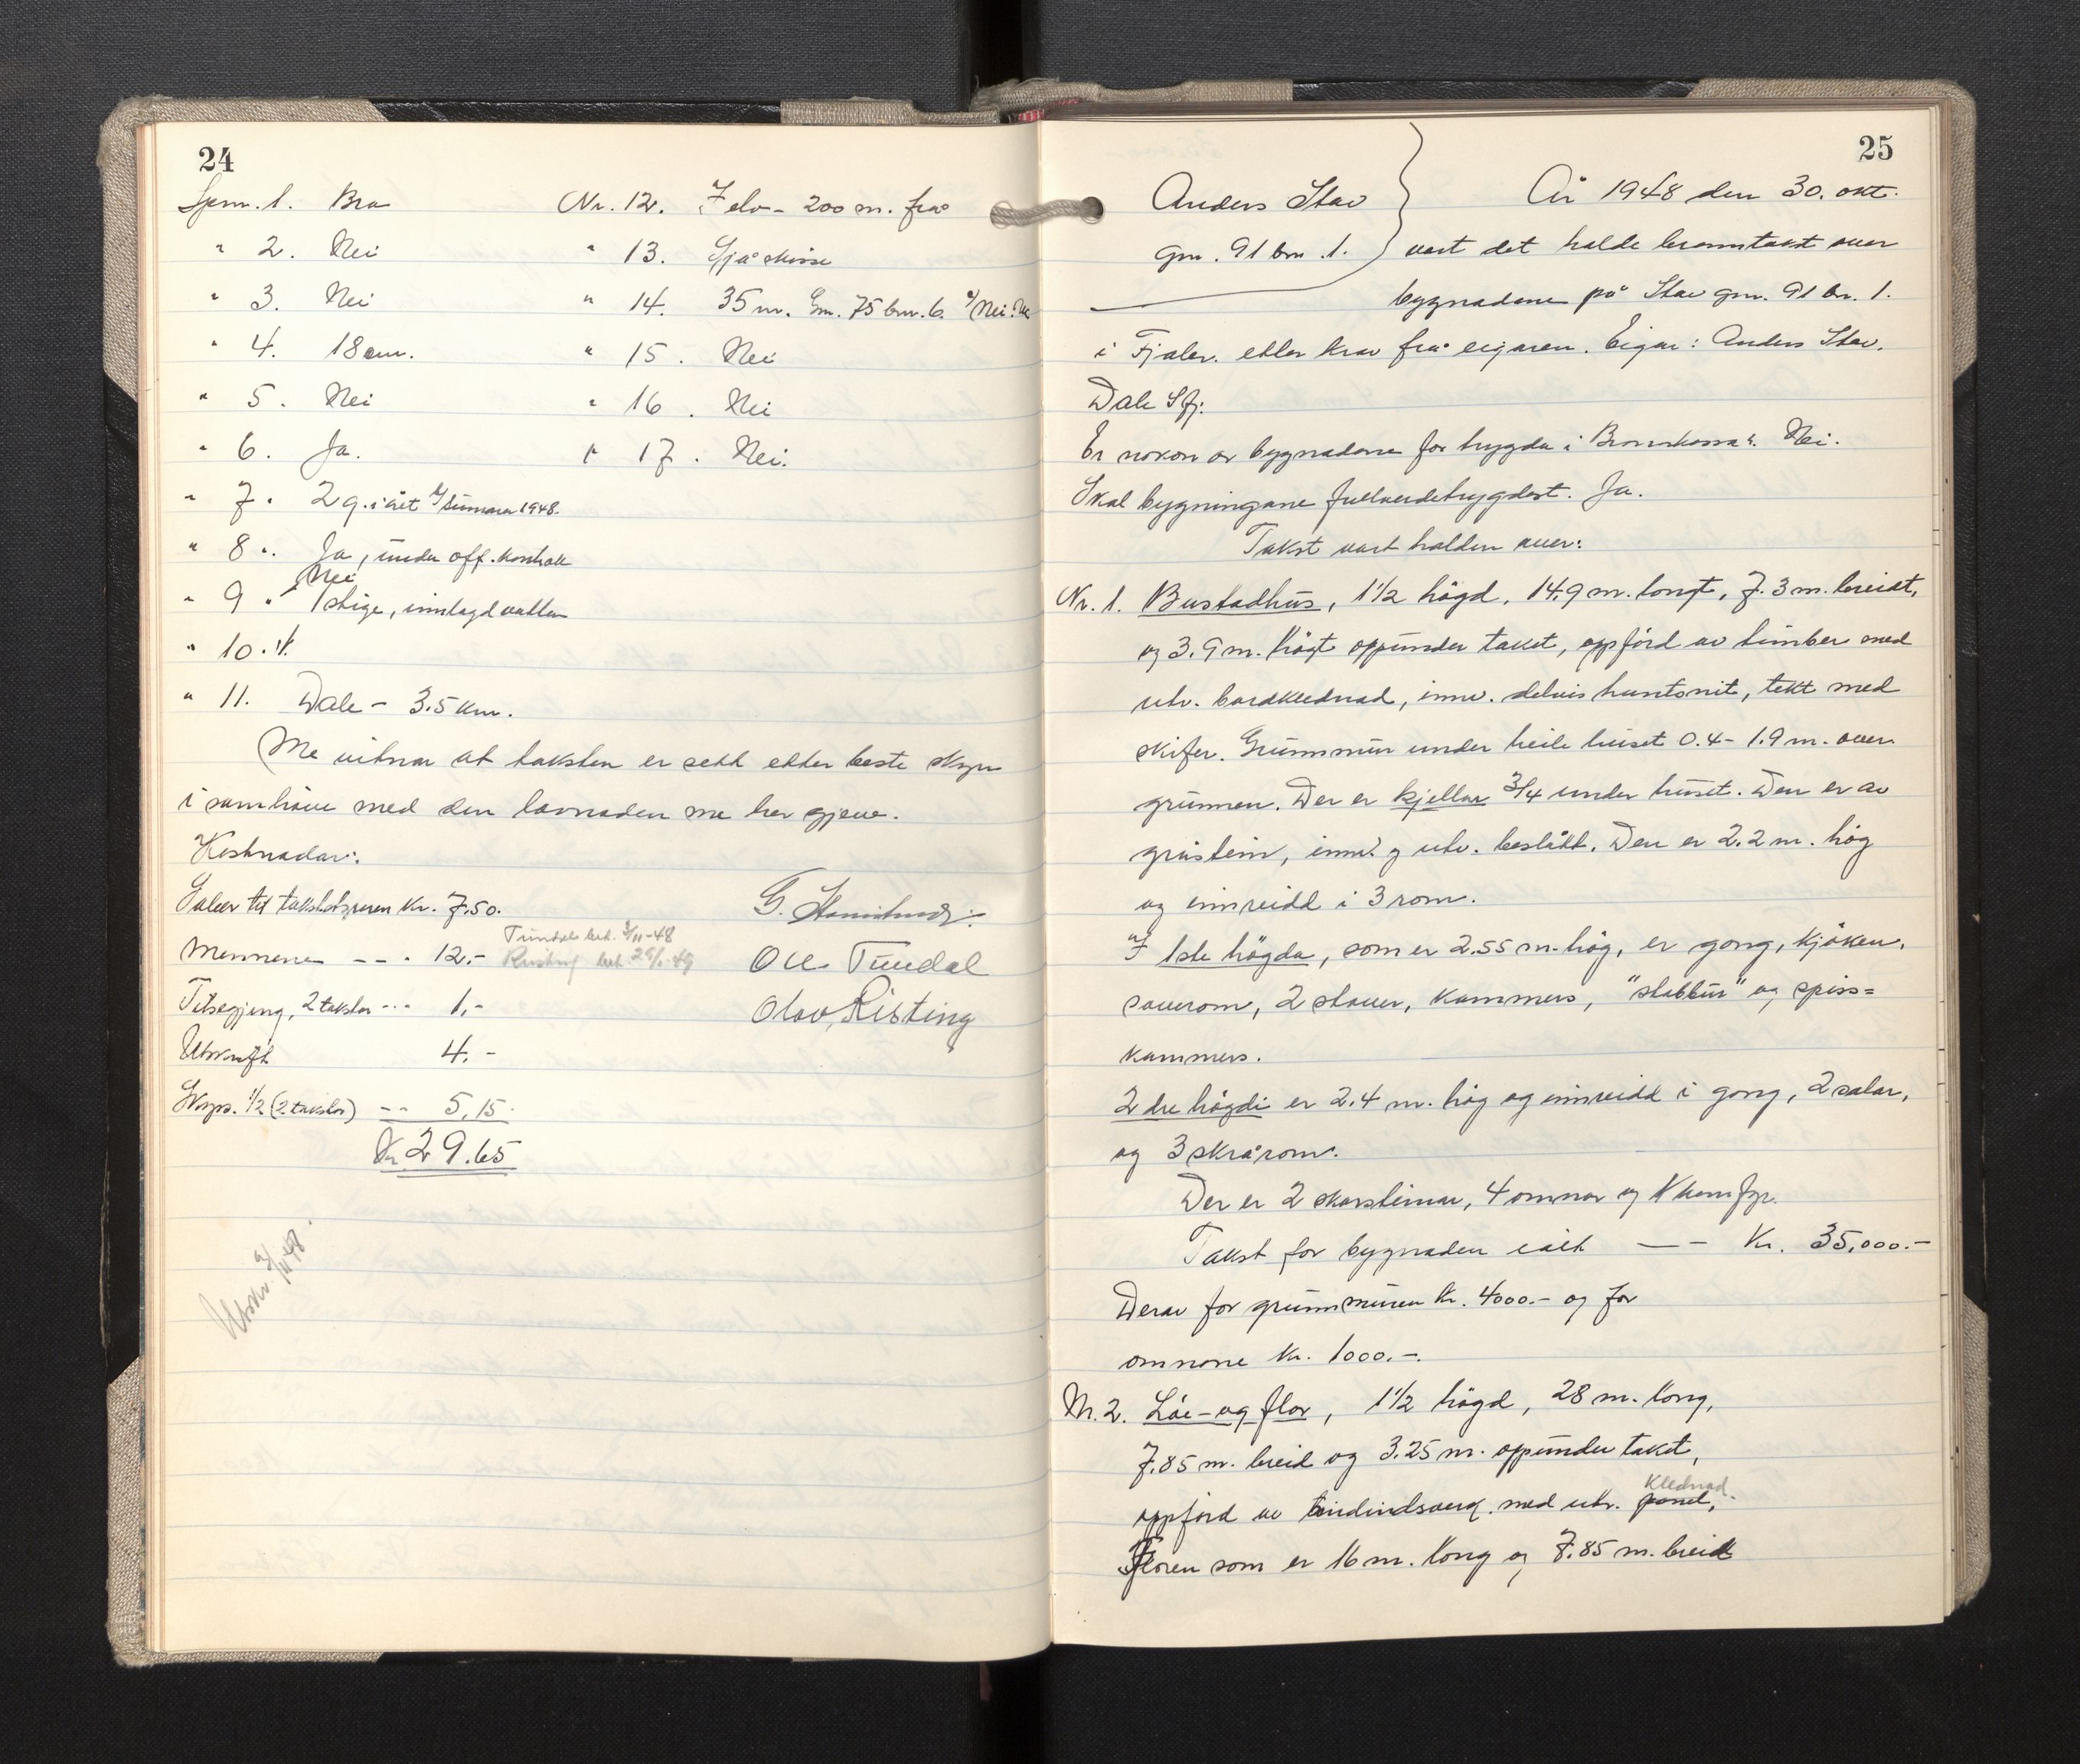 24
Spm. 1. Bra
" 2. Nei
" 3. Nei
" 4. 18 cm.
" 5. Nei
" 6. Ja.
" 7. 2 g. i året sumaren 1948.
" 8. Ja, under off. kontroll
Nei
" 9. 1 stige, innlagd vatten
" 10.
" 11. Dale - 3.5 km.
Nr. 12. I elv - 200 m. frå
" 13. Sjå skisse
" 14. 35 m. Gnr. 75 bnr. 6. Nei.
" 15. Nei
" 16. Nei
" 17. Nei.
Me vitnar at taksten er sett etter beste skyn
i samhøve med den lovnaden me har gjeve.
Kostnadar:
Salær til takstst­yraren Kr. 7.50.
Mennene - - - 12.- Tundal bet. 3/11-48
bet.
Tilsegjing, 2 takstar - - - 1,-
Utskrift 4.-
Skyss. 1/2 (2 takstar) - - 5,15.
Kr. 29.65
Ole Tundal
Olav Risting
Utskr. /11-48.
25
Anders Stav
gnr. 91 bnr. 1.
År 1948 den 30. okt.
vart det halde branntakst over
bygnadane på Stav gnr. 91 bnr. 1.
i Fjaler. etter krav frå eigaren. Eigar: Anders Stav.
Dale Sfj.
Er nokon av bygnadane før trygda i Brannkassa? Nei.
Skal bygningane fullverdetrygdast. Ja.
Takst vart halden over:
Nr. 1. Bustadhus, 1 1/2 högd, 14.9 m. langt, 7.3 m. breidt,
og 3.9 m. högt oppunder taket, oppförd av timber med
utv. bordklednad, innv. delvis huntonit, tekt med
skifer. Grunnmur under heile huset 0.4 - 1.9 m. over
grunnen. Der er kjellar 3/4 under huset. Den er av
gråstein, innv. og utv. beslått. Den er 2.2 m. hög
og innreidd i 3 rom.
I 1ste högda, som er 2.55 m. hög, er gong, kjöken,
soverom, 2 stover, kammers, "stabbur" og spiss=
kammers.
2dre högdi er 2.4 m. hög og innreidd i gong, 2 salar,
og 3 skrårom.
Der er 2 skorsteinar, 4 omnar og 1 komfyr.
Takst for bygnaden ialt - - Kr. 35.000.-
Derav for grunnmuren kr. 4000.- og for
omnane kr. 1000.-.
Nr. 2. Löe- og flor, 1 1/2 högd, 28 m. long,
7.85 m. breid og 3.25 m. oppunder taket,
Klednad
oppförd av bindindsverk med utv. panel,
Floren som er 16 m. long og 7.85 m. breid